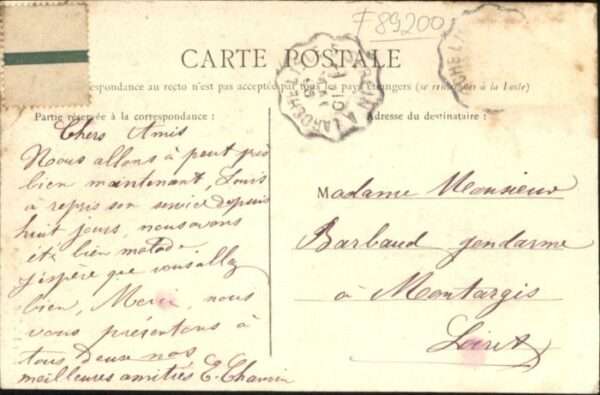 F 89200
CARTE POSTALE
respondance au recto n'est pas acceptée par tous les pays étrangers (se renseigner à la Poste)
Partie réservée à la correspondance :
Chers Amis
Nous allons à peut près
bien maintenant, Louis
à repris son service depuis
huit jours, nous avons
été bien malade.
j'espère que vous allez
bien, Merci, nous
vous présentons à
tous deux nos
meilleures amitiés E.
Adresse du destinataire :
Madame Monsieur
Barbaud gendarme
à Montargis
Loiret